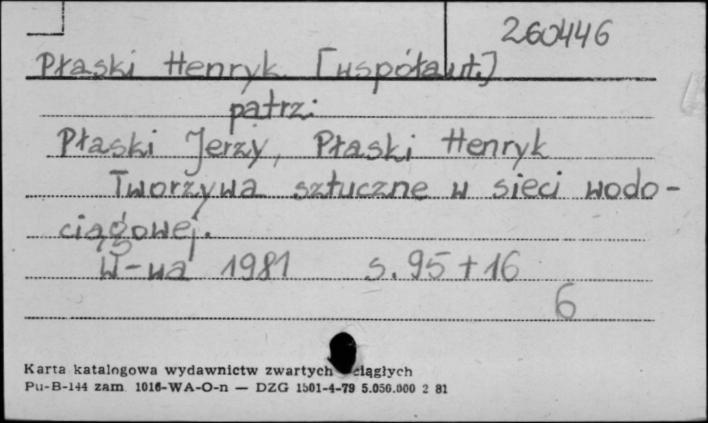 260446
Płaski Henryk [współaut.]
patrz:
Płaski Jerzy, Płaski Henryk
Tworzywa sztuczne w sieci wodo-
ciągowej.
W-wa 1981 s. 95 + 16
6
Karta katalogowa wydawnictw zwartych ciągłych
Pu-B-144 zam. 1016-WA-O-n — DZG 1501-4-79 5.050.000 2 81